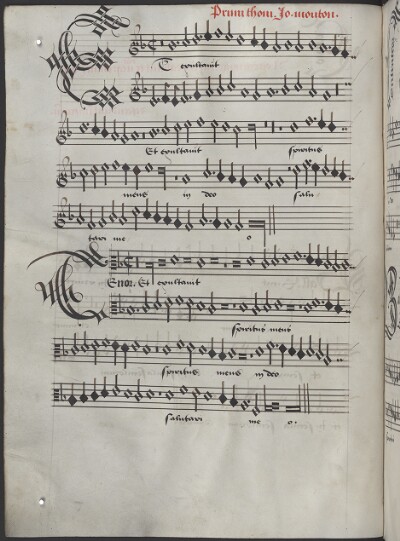 Primi thoni Jo. mouton.
Et exultavit
Et exultavit spiritus
meus in deo salu
tari me o
Tenor. Et exultavit
spiritus meus
spiritus meus in deo
salutari me o.